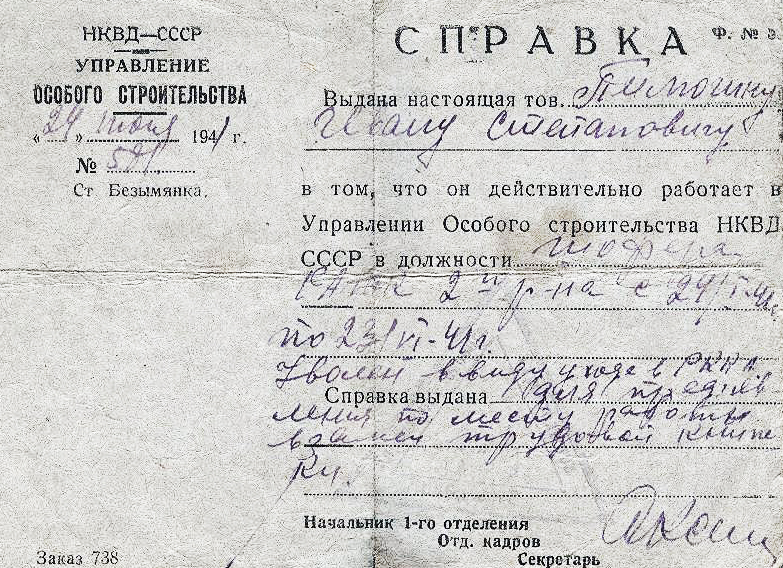 НКВД—СССР
УПРАВЛЕНИЕ
ОСОБОГО СТРОИТЕЛЬСТВА
«24» июня 1941 г.
№
Ст Безымянка.
СПРАВКА Ф. №
Выдана настоящая тов. Тимошину
Ивану Степановичу
в том, что он действительно работает в
Управлении Особого строительства НКВД
СССР в должности шофера
2го р-на с 24/
по 23/VI-41г.
Уволен ввиду ухода в РККА.
Справка выдана для предъяв
ления по месту работы
взамен трудовой книж
ки.
Начальник 1-го отделения
Отд. кадров
Секретарь
Заказ 738